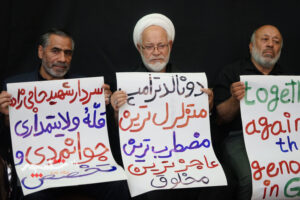 سردار شهید حاجی زاده
قلهٔ ولایتمداری
جوانمردی و
تخصص
دونالد ترامپ
متزلزل ترین
مضطرب ترین
عاجزترین
مخلوق
together
again
the
geno
in G